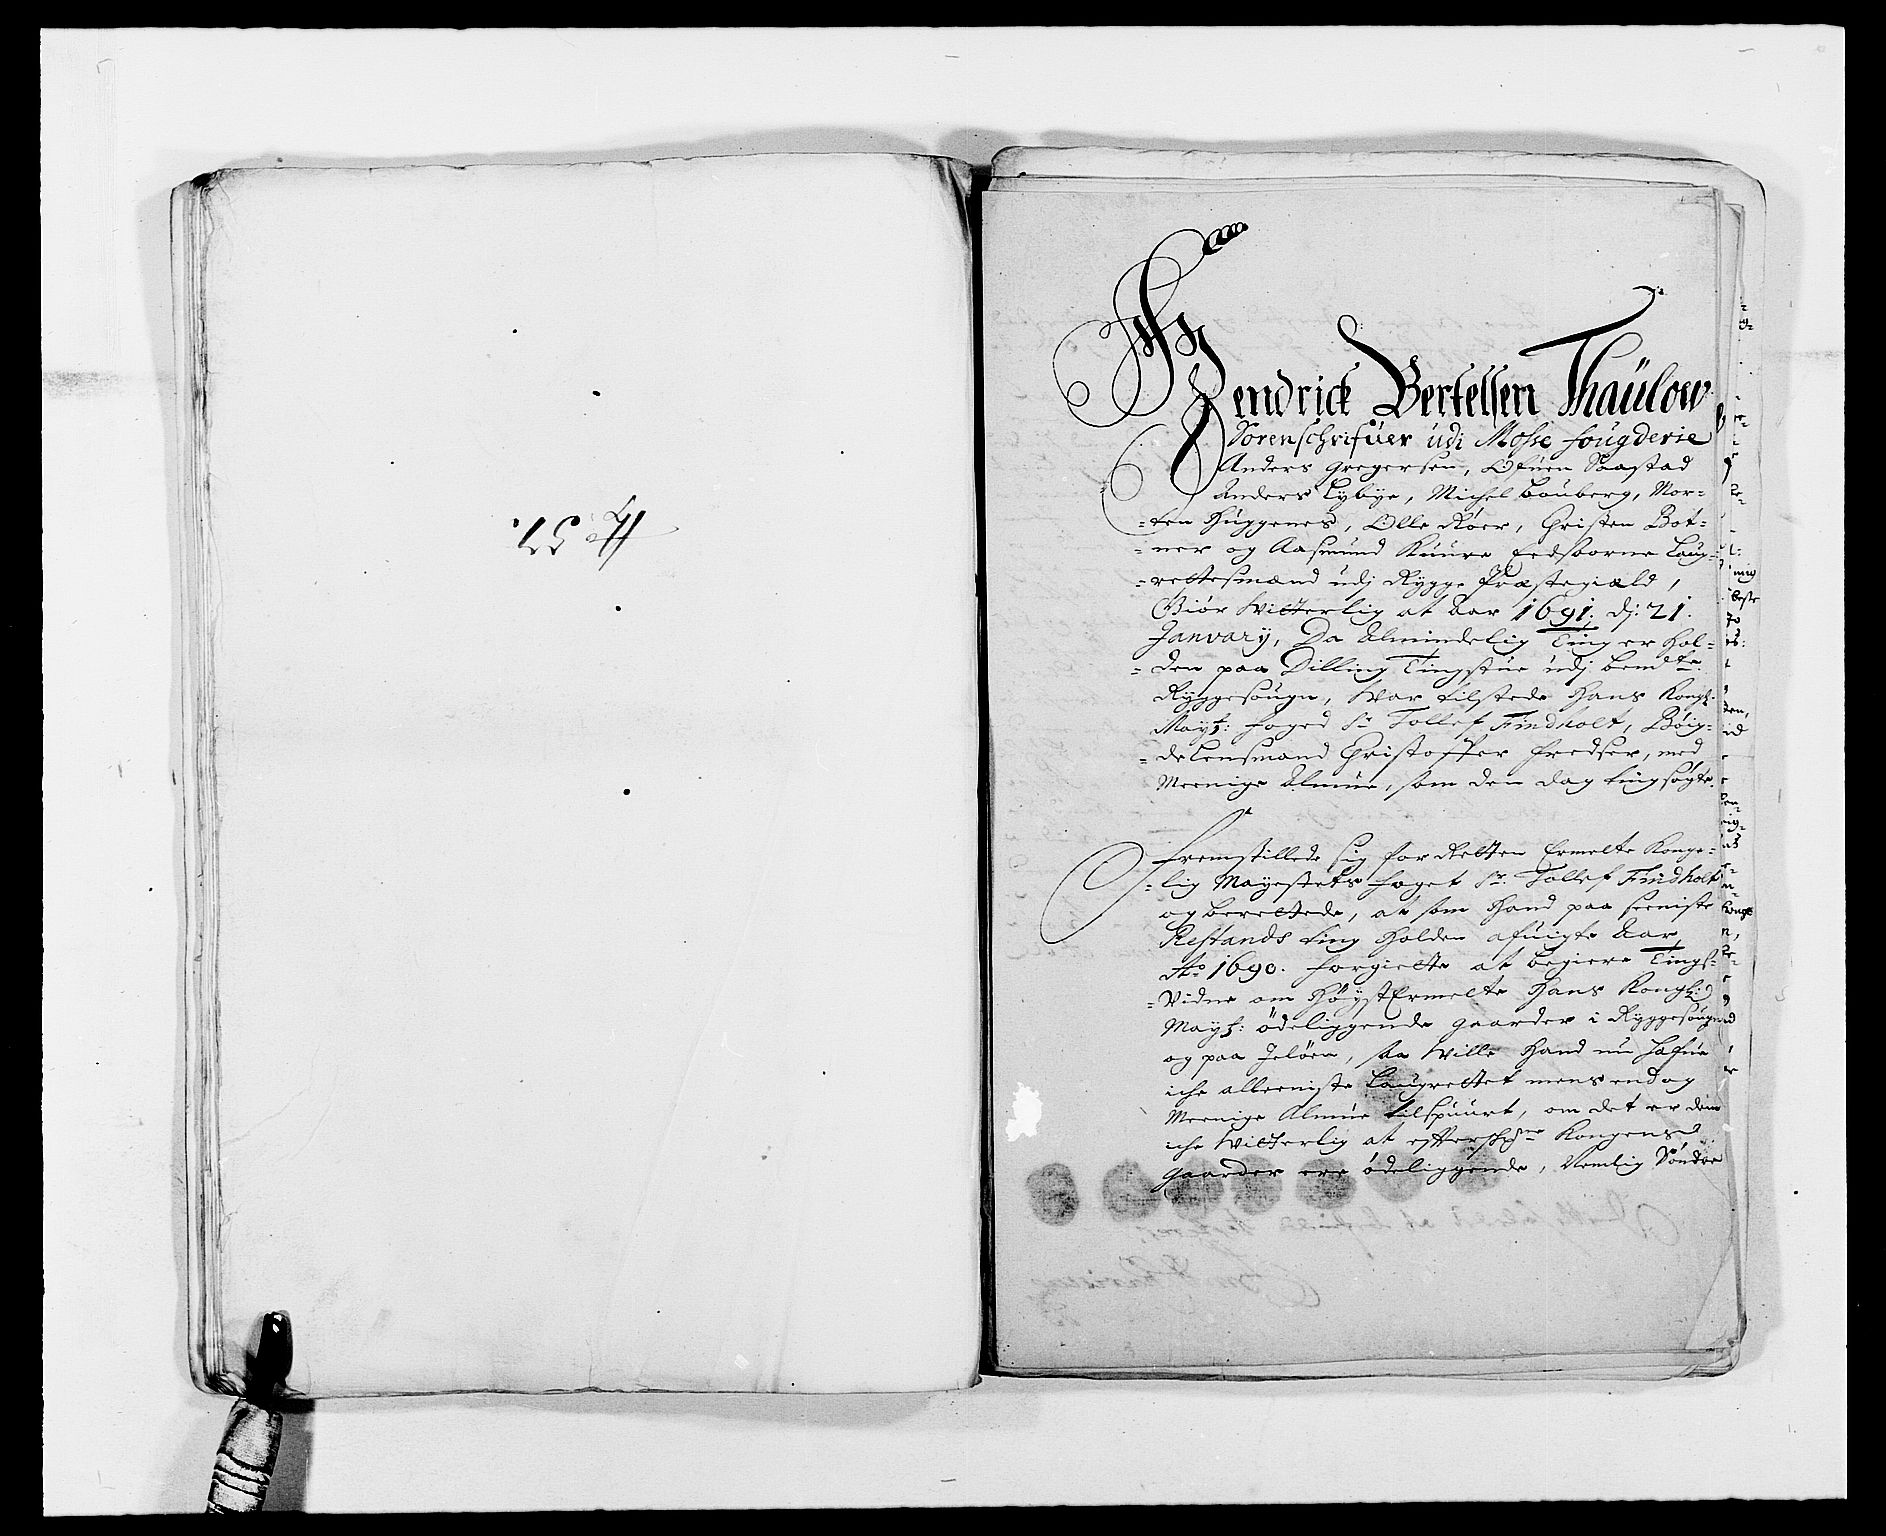 No 37.
Hendrick Bertelsen Thaülow
Sorenschrifüer udi Mosse fougderie
Anders Gregersen, Ofuen Saastad
Anders Lybye, Michel Bouberg, Mor-
-ten Huggenes, Olle Röer, Christen Bot-
-ner og Aasmund Kuure Eedsoorne Laug-
-rettesmænd udj Rygge Præstegiæld,
Giör Witterlig at Aar 1691; dj: 21.
January, Da Almindelig Ting er hol-
-den paa Dilling Tingstue udj bemdte
Ryggesougn, War tilstede Hans Kongl:
Mayts: foged Sr Tollef Findholt, Böig-
-delensmand Christoffer Fredsen, med
Meenige Almue, som den dag tingsögte.
Fremstillede sig for Retten Ermelte Konge-
-lig Mayestets foget Sr. Tollef Findholt
og berettede, at som hand paa seeniste
Restands ting holden afuigte Aar,
Ao 1690. forgiette at begiere Tings-
-Vidne om HöystErmelte Hans Kongl:
Mayts: ödeliggende gaarder i Ryggesougn
og paa Jelöen, saa Wille hand nu hafue
iche alleeniste Laugrettet mens endog
Meenige Almue tilspuurt, om det er dem
iche Witterlig at efferschrne Kongens
gaarder ere ödeliggende, Nemlig Söndre